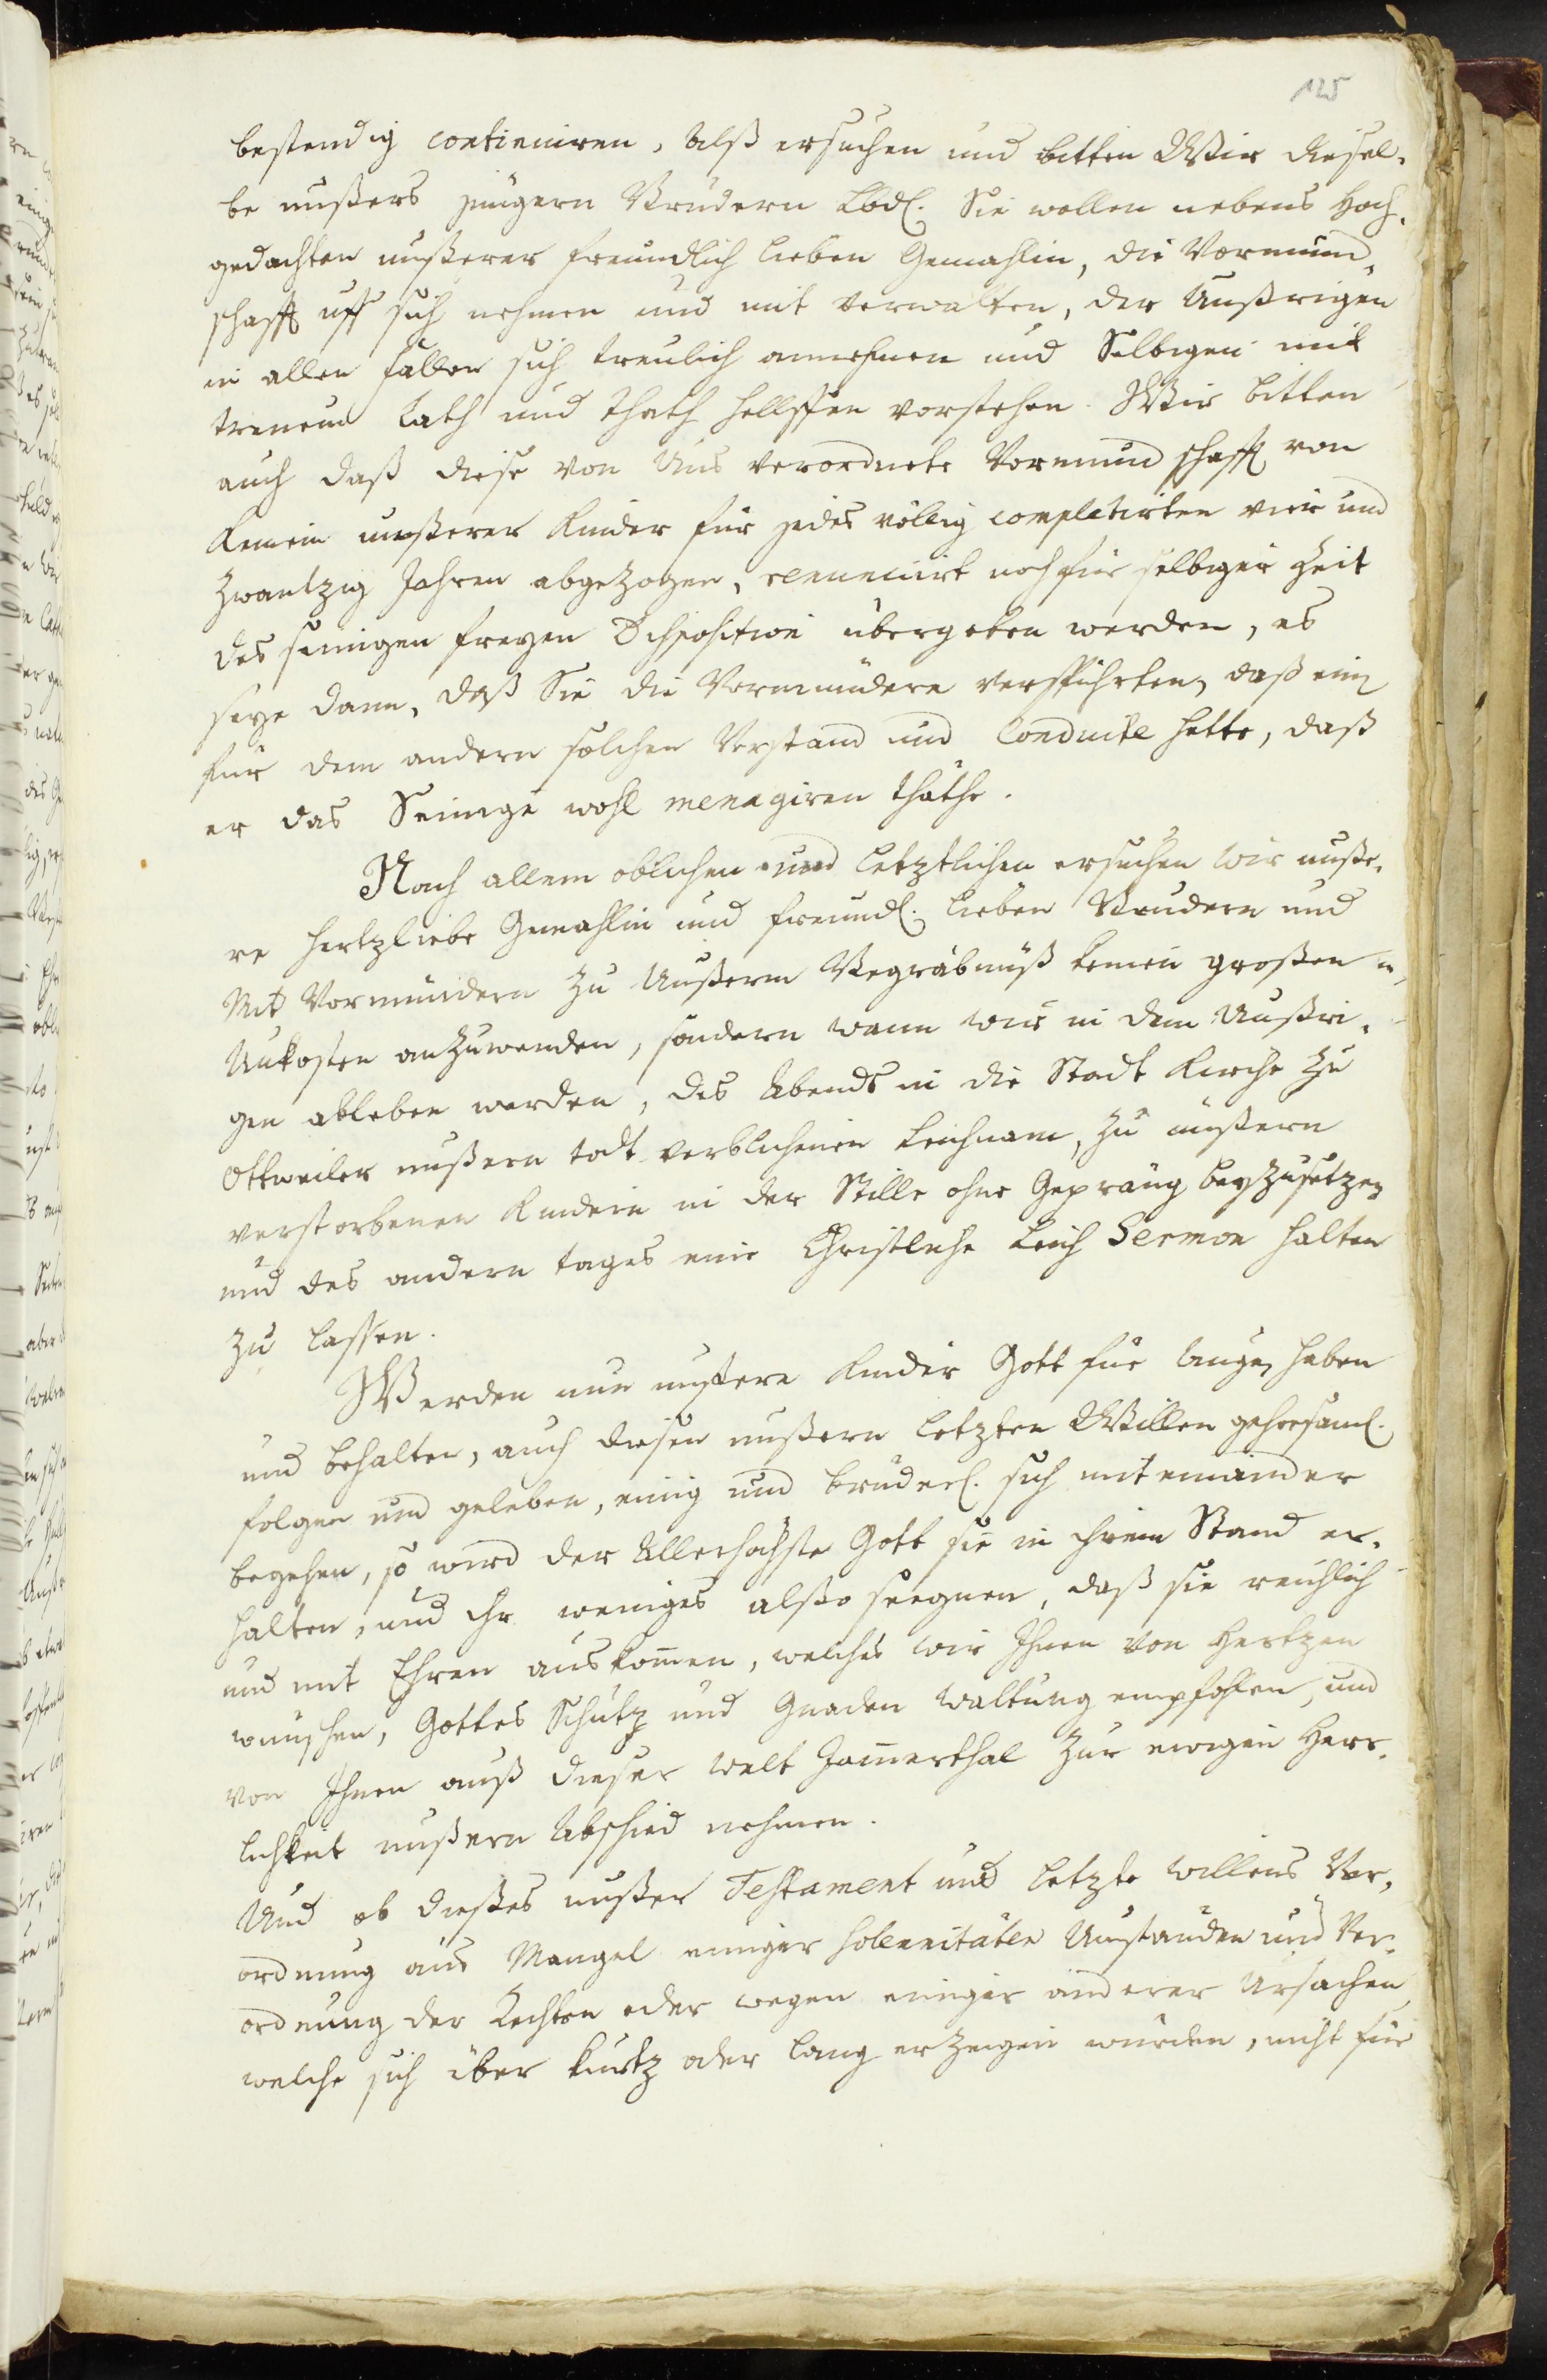 125
bestendig continuiren, Alß ersuchen und bitten Wir diesel¬
be unßers jüngern Brudern Lbd. Sie wollen nebens Hoch¬
gedachten unßerer freundlich lieben Gemahlin, die Vormund¬
schafft uff sich nehmen und mit verwalten, der Unßrigen
in allen fällen sich treulich annehmen und Selbigen mit
treuem Rath und thath helffen vorstehen. Wir bitten
auch daß diese von Uns verordnete Vormundschafft von
Keinem unßerer Kinder für jedes völlig completirten vier und
zwantzig Jahren abgezogen, renuncirt noch für selbiger Zeit
des seinigen freyen Disposition übergeben werden, es
seye dann, daß Sie die Vormündere verspührten, daß ein
für dem andern solchen Verstand und Conduite hette, daß
er das Seinige wohl menagiren thäthe.
Nach allem oblichen und letztlichen ersuchen wir unße¬
re hertzliebe Gemahlin und freundl. lieben Brudern und
Mit Vormündern zu Unßerm Begräbnüß keinen großen
Unkosten anzuwenden, sondern wann wir in dem Unßri¬
gen ableben werden, des Abends in die Stadt Kirche zu
Ottweiler unßern todt verblichenen Leichnam, zu unßern
verstorbenen Kindern in der Stille ohne Gepräng beyzusetzen
und des andern tages eine Christliche Leich Sermon halten
zu lassen.
Werden nun unßere Kinder Gott für Augen haben
und behalten, auch diesen unßern letzten Willen gehorsaml.
folgen und geleben, einig und brüderl. sich miteinander
begehen, so wird der Allerhöchste Gott sie in ihrem Stand er¬
halten, und ihr weniges alßo seegnen, daß sie reichlich
und mit Ehren auskom̄en, welches wir Ihnen von Hertzen
wünschen, Gottes Schutz und Gnaden Waltung empfohlen, und
von Ihnen auß dieser welt Jam̄erthal zur ewigen Herr¬
lichkeit unßern Abschied nehmen.
Und ob dießes unßer Testament und letzte Willens Ver¬
ordnung aus Mangel einiger Solennitäten Umständen und Ver¬
ordnung der Rechten oder wegen einiger anderer Ursachen
welche sich über kurtz oder lang erzeigen würden, nicht für